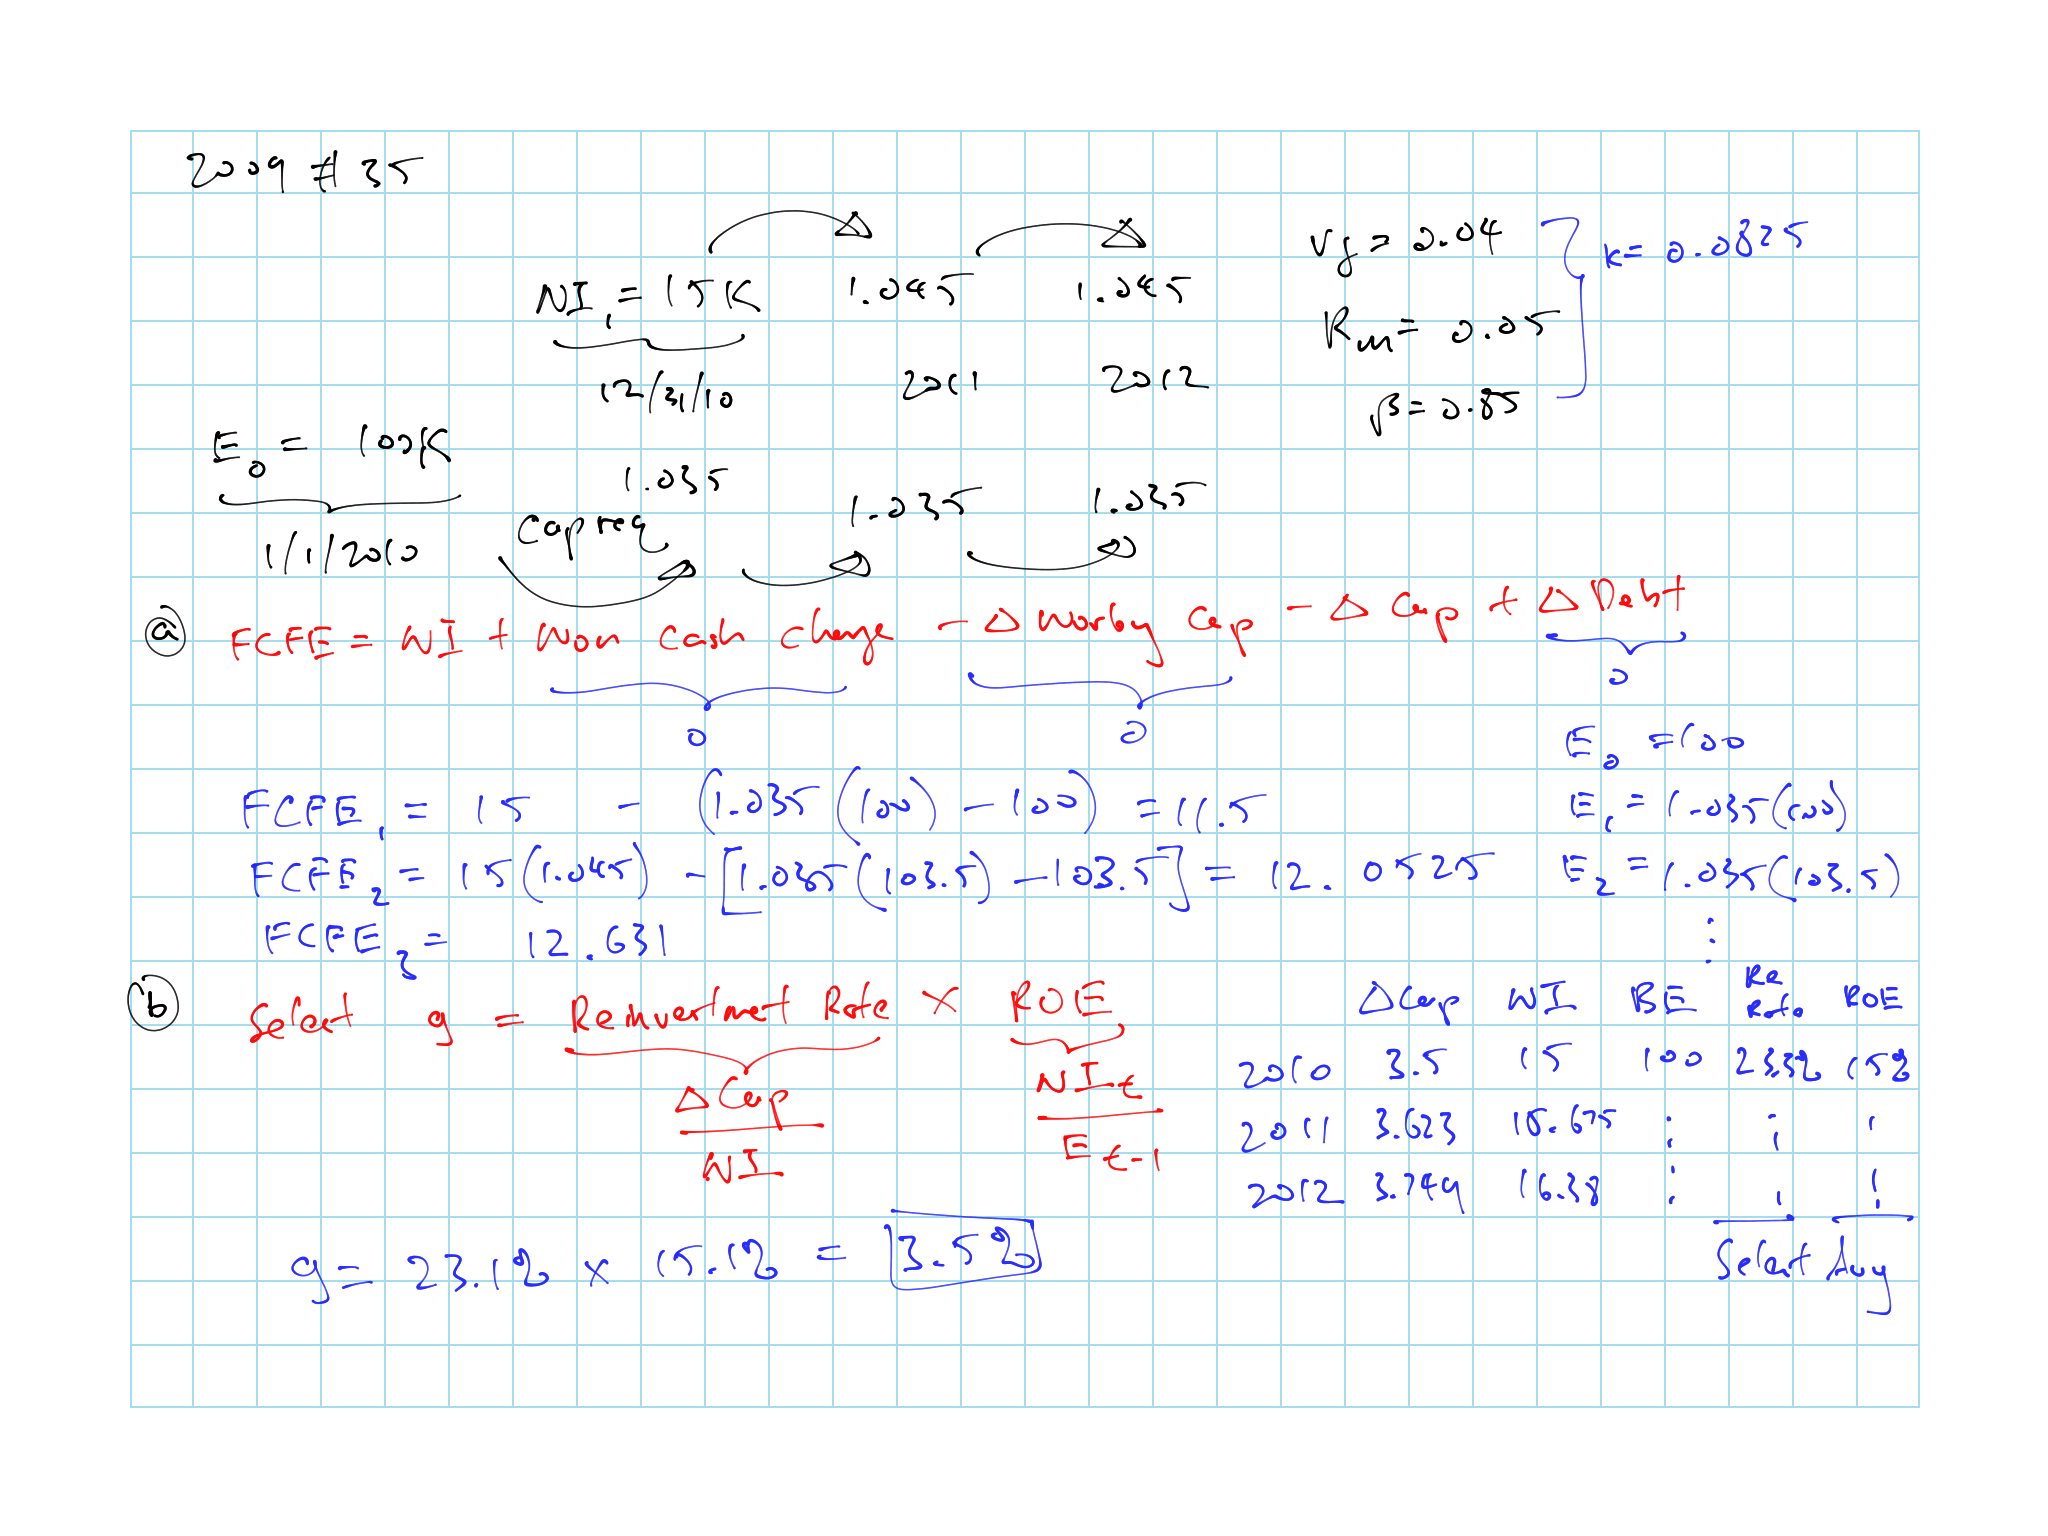 2009 #35
NI₁ = 15K 1.045 1.045
rf = 0.04
k = 0.0825
Rm = 0.05
12/31/10 2011 2012
β = 0.85
E₀ = 100K
1.035 1.035 1.035
Cap req
1/1/2010
(a) FCFE = NI + Non cash charge - Δ Working Cap - Δ Cap + Δ Debt
0 0 0
E₀ = 100
FCFE₁ = 15 - (1.035(100) - 100) = 11.5 E₁ = 1.035(100)
FCFE₂ = 15(1.045) - [1.035(103.5) - 103.5] = 12.0525 E₂ = 1.035(103.5)
FCFE₃ = 12.631 ⋮
(b) Select g = Reinvestment Rate × ROE
ΔCap / NI
NIt / Et-1
ΔCap NI BE Re Rate ROE
2010 3.5 15 100 23.3% 15%
2011 3.623 15.675 ⋮ ⋮ ⋮
2012 3.749 16.38 ⋮ ⋮ ⋮
Select Avg
g = 23.1% × 15.1% = 3.5%